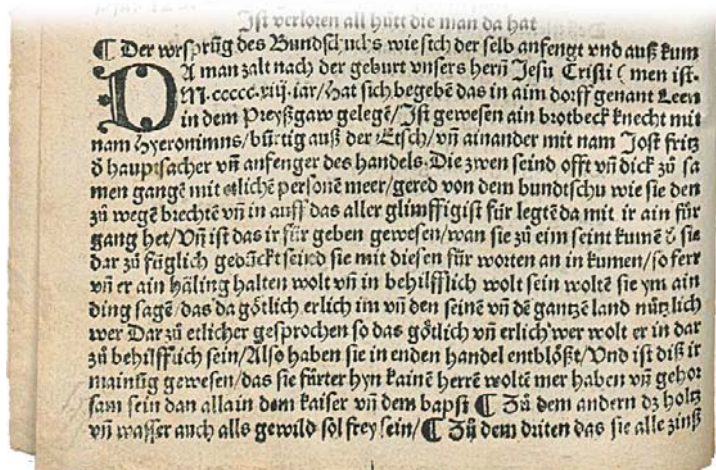 Ist verloren all hütt die man da hat
¶ Der vrsprũg des Bundschuchs wie sich der selb anfengt vnd auß kum
DA man zalt nach der geburt vnsers herñ Jesu Cristi
M.ccccc.xiij.iar/Hat sich begebẽ das in aim dorff genant Leen
in dem Preyßgaw gelegẽ/Ist gewesen ain brotbeck knecht mit
nam Hyeronimus/bürtig auß der Etsch/vñ ainander mit nam Jost fritz
d̄ hauptsacher vñ anfenger des handels. Die zwen seind offt vñ dick zů sa
men gangẽ mit etlichẽ personẽ meer/gered von dem bundtschu wie sie den
zů wegẽ brechtẽ vñ in auff das aller glimffigist für legtẽ da mit ir ain für
gang het/Vñ ist das ir für geben gewesen/wan sie zů eim seint kumẽ d̄ sie
dar zů füglich gedückt seind sie mit diesen für worten an in kumen/so ferr
vñ er ain häling halten wolt vñ in behilfflich wolt sein woltẽ sie ym ain
ding sagẽ/das da götlich erlich im vñ den seinẽ vñ dẽ gantzẽ land nützlich
wer Dar zů etlicher gesprochen so das götlich vñ erlich wer wolt er in dar
zů behilfflich sein/Also haben sie in enden handel entblößt/Vnd ist diß ir
mainũg gewesen/das sie fürter hyn kainẽ herrẽ woltẽ mer haben vñ gehor
sam sein dan allain dem kaiser vñ dem bapst ¶ Zů dem andern dz holtz
vñ wasser auch alls gewild sol frey sein/¶ Zů dem dritten das sie alle zinß